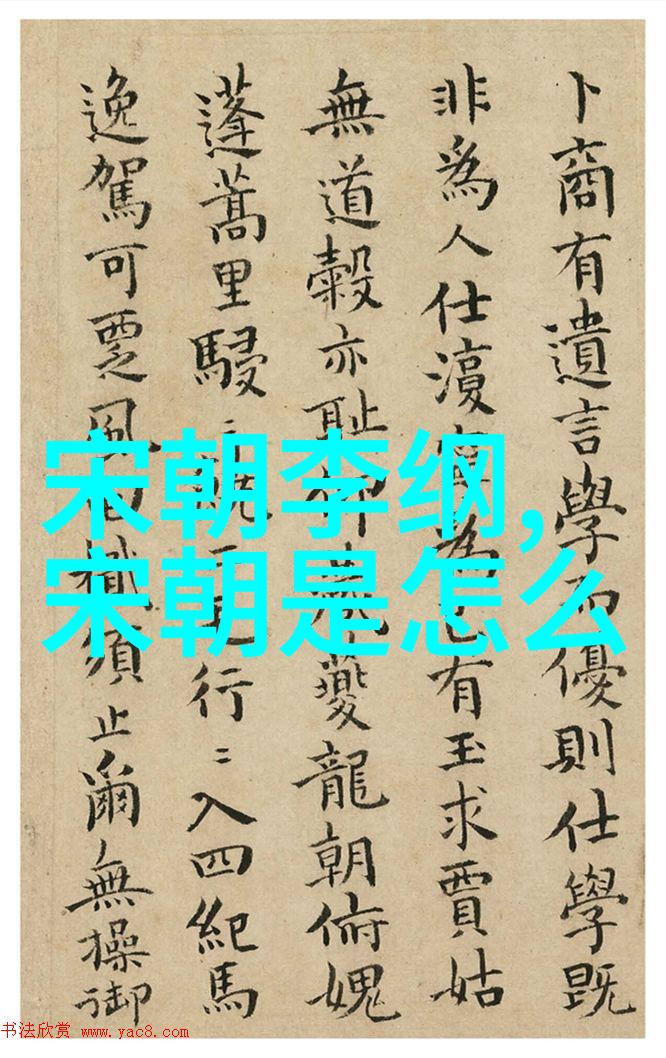 卜商有遺言學而優則仕學既
非爲人仕湏為己有玉求賈姑
無道穀亦耻仰慕夔龍朝俯媿
蓬蒿里駸〻行〻入四紀馬
逸駕可覂風檝須止爾無操御
宋朝李纲,
宋朝是怎么
书法欣赏 www.yac8.com